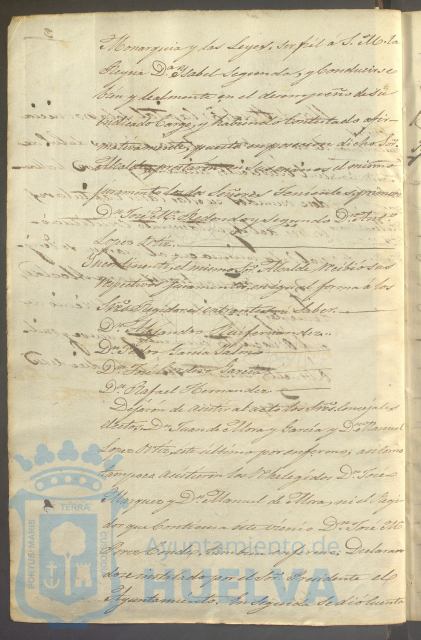 Monarquia y las Leyes, ser fiel á S. M. la
Reyna Dª Ysabel Segunda, y Conducirse
bien y lealmente en el desempeño de su
indicado Cargo, y habiendo contestado afir-
mativamente, puesto en posesion dicho Sor.
Alcalde el mismo
juramento Señores Tenientes primero
Dn. José Mª Redondo y segundo Dn. Antº
Lopez Ortiz
Igualmente, el mismo Sor. Alcalde recibió sus
respectivos juramentos, en igual forma á los
Sres. Regidores entrantes á Saber.
Dn. Alejandro
Dn. Garcia
Dn. José Garcia
Dn. Rafael Hernandez
Dejaron de asistir al acto los Sres. Concejales
electos, Dn. Juan de Mora y Garcia y Dn. Manuel
Lopez Ortiz, este ultimo por enfermo, asi como
tampoco asistieron los Reelegidos Dn. José
Vazquez y Dn. Manuel de Mora, ni el Regi-
dor que Continua este vienio Dn. José Mª
Perez tambien Declaran-
dose instalado por el Sor. Presidente el
Ayuntamiento. En seguida se dió cuenta
PORTUS MARIS
TERRA
CUSTODIA
Ayuntamiento de
HUELVA